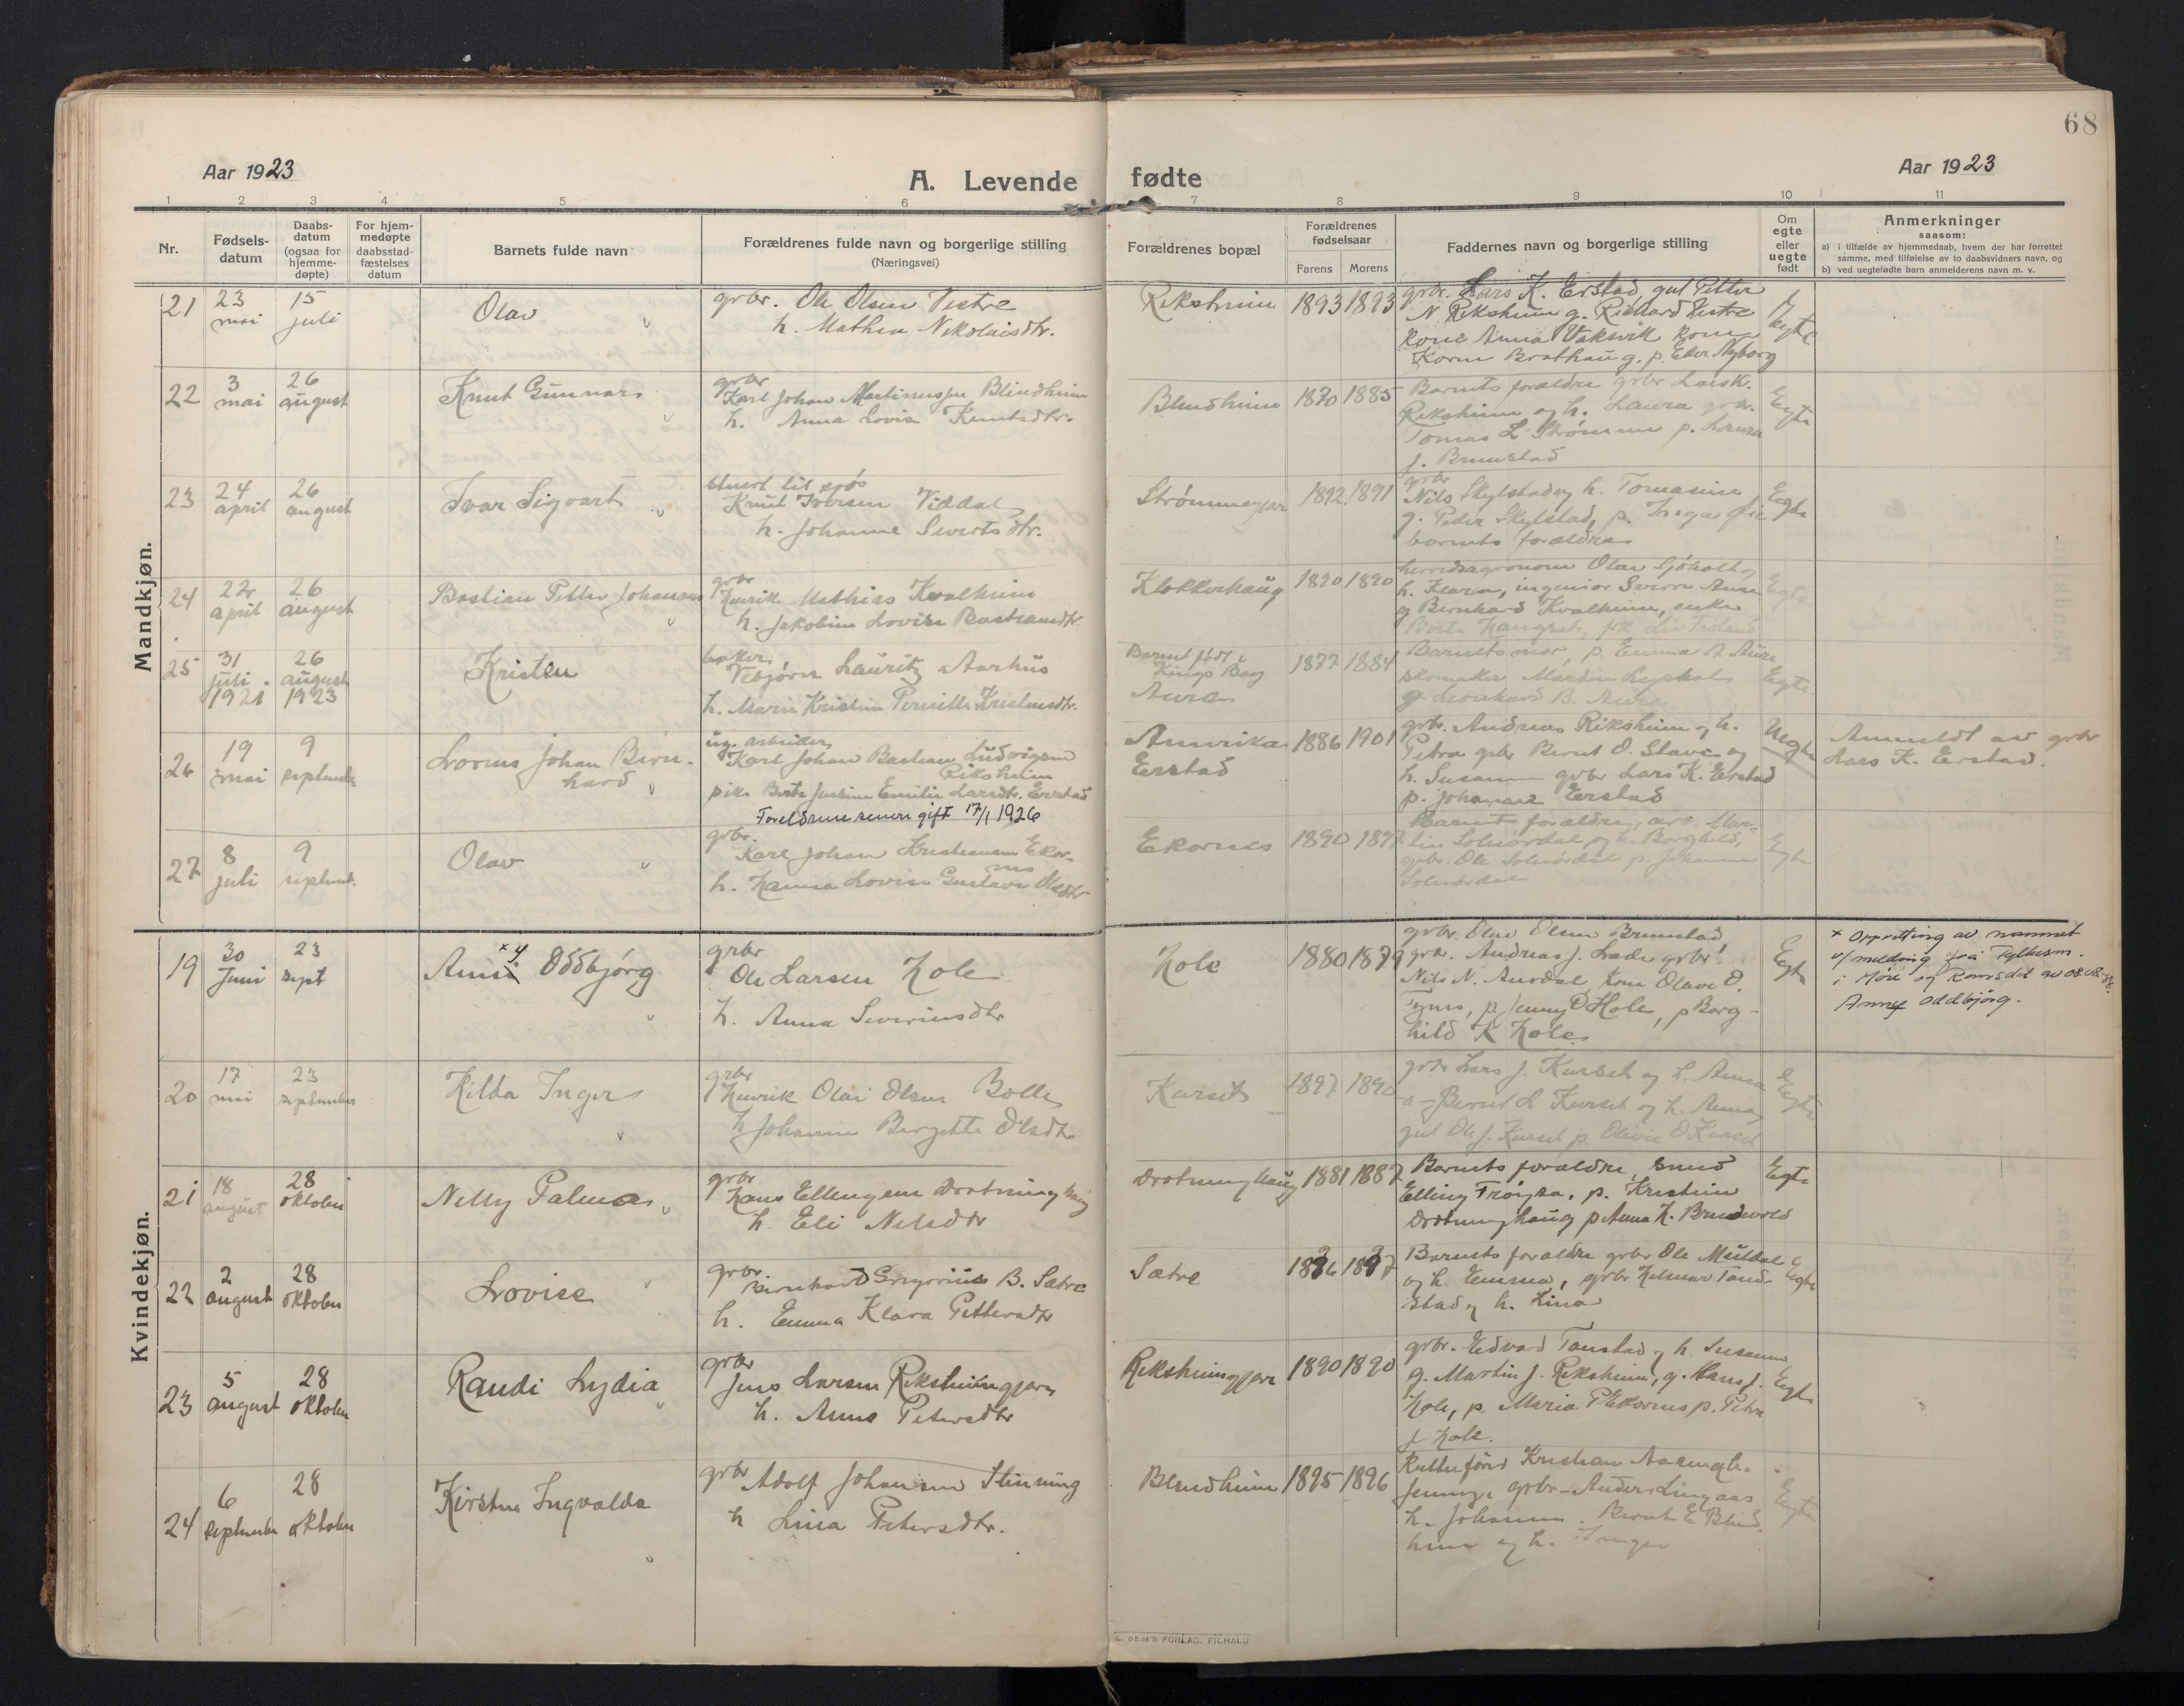 68
Aar 1923
A. Levende fødte
Aar 1923
1 2 3 4 5 6 7 8 9 10 11
Nr.
Fødsels-
datum
Daabs-
datum
(ogsaa for
hjemme-
døpte)
For hjem-
medøpte
daabsstad-
fæstelses
datum
Barnets fulde navn
Forældrenes fulde navn og borgerlige stilling
(Næringsvei)
Forældrenes bopæl
Forældrenes
fødselsaar
Farens Morens
Faddernes navn og borgerlige stilling
Om
egte
eller
uegte
født
Anmerkninger
saasom:
a) i tilfælde av hjemmedaab, hvem der har forrettet
samme, med tilføielse av to daabsvidners navn, og
b) ved uegtefødte barn anmelderens navn m. v.
Mandkjøn.
21
23
mai
15
juli
Olav
grbr. Ole Olsen Vestre
h. Mathea Nikolaisdtr.
Riksheim
1893 1893
grbr. Lars K. Erstad gut Petter
N Riksheim g. Richard Vestre
kone Anna Vaksvik kone
Karen Brathaug, p. Nyborg
Egte
22
3
mai
26
august
Knut Gunnar
grbr
Karl Johan Martinussen Blindheim
h. Anna Lovise Knutsdtr.
Blindheim
1870 1885
Barnets forældre grbr Lars K.
Riksheim og h. Laura grbr.
Tomas L Strømme p. Laura
J. Brunstad
Egte
23
24
april
26
august
Ivar Sigvart
Knut Iversen Viddal
h. Johanne Sivertsdtr.
Strømmegjær
1892 1891
grbr
Nils Skylstad og h. Tomasine
g. Peder Skylstad, p. Inga
barnets forældre
Egte
24
22
april
26
august
Bastian Petter Johannes
grbr
Henrik Mathias Kvalheim
h. Jakobine Lovise Bastiansdtr.
Klokkerhaug
1890 1890
herredsagronom Olav Sjøholt og
h. Klara, ingeniør Sverre Aure
og Bernhard Kvalheim, enke
Berte Haugset,
Egte
25
31
juli
1921
26
august
1923
Kristen
baker
Vebjørn Lauritz Aarhus
h. Marie Kristine Pernille Kristensdtr.
Barnet født i
Kings Bay
Aure
1877 1884
Barnets mor, p. Emma A Aure
skomaker Martin Lyshol
g. Leonhard B. Aure
Egte
26
19
mai
9
september
Lorens Johan Bern-
hard
ug. arbeider
Karl Johan Bastian Ludvigsen
Riksheim
pike Berte Jensine Emilie Larsdtr. Erstad
Foreldrene senere gift 17/1 1926
Amerika
Erstad
1886 1901
grbr. Andreas Riksheim og h.
Petra grbr Bernt O. Stave og
h. Susanne grbr Lars K. Erstad
p. Johanne Erstad
Uegte
Anmeldt av grbr
Lars K. Erstad.
27
8
juli
9
septemb.
Olav
grbr.
Karl Johan Kristiansen Ekor-
nes
h. Hanna Lovise Gustava Olsdtr
Ekornes
1890 1897
Barnets forældre, arb. Mar-
tin Solnørdal og h. Borghild,
grbr. Ole Solnørdal p. Johanne
Solnørdal
Egte
Kvindekjøn.
19
30
Juni
23
sept
Anni x y. Oddbjørg
grbr
Ole Larsen Hole
h. Anna Severinsdtr
Hole
1880 1879
grbr. Olav Olsen Brunstad
grbr. Andreas J. Lade grbr.
Nils N. Aursdal, Kone Olave O.
Tynes, p. Jenny O Hole, p Borg-
hild K Hole
Egte
x Oppretting av namnet
v/ melding frå Fylkesm.
i Møre og Romsdal av 08.08.
Anny Oddbjørg.
20
17
mai
23
september
Hilda Inger
grbr
Henrik Olai Olsen Bolle
h Johanne Bergitte Olsdtr
Kurset
1897 1890
grbr Lars J. Kurset og h. Anna
Bernt L Kurset og h. Anna
gut Ole J. Kurset p. Olivie O Kurset
Egte
21
18
august
28
oktober
Nelly Palma
grbr
Hans Ellingsen Drotninghaug
h. Eli Nilsdtr
Drotninghaug
1881 1887
Barnets forældre, smed
Elling Frøysa, p. Kristine
Drotninghaug p Anna K. Brudevold
Egte
22
2
august
28
oktober
Lovise
grbr
Bernhard Gregorius B. Sætre
h. Emma Klara Pettersdtr
Sætre
Barnets forældre grbr Ole Muldal
og h. Emma, grbr Hilmar Tand-
stad og h. Lina
Egte
23
5
august
28
oktober
Randi Lydia
grbr
Jens Larsen Riksheimgjær
h. Anne Petersdtr
Riksheimgjær
1890 1890
grbr. Edvard Tanstad og h. Susanne
g. Martin J. Riksheim, g. Hans J.
Hole, p. Maria P Ekornes p. Petra
J Hole.
Egte
24
6
september
28
oktober
Kirsten Ingvalda
grbr Adolf Johansen Stenning
h Lina Petersdtr.
Blindheim
1895 1896
Rutebilfører Kristian
Jenny, grbr Anders Lingaas
h. Johanne. Bernt E Blind-
heim og h. Inger
Egte
E. SEM'S FORLAG, FR.HALD